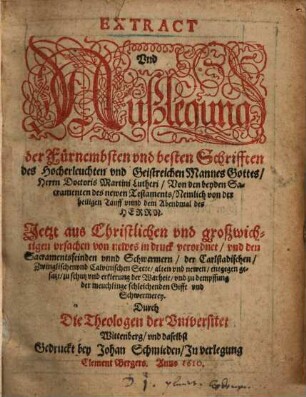 EXTRACT
Vnd
Außlegung
der Fürnembsten vnd besten Schrifften
des Hocherleuchten vnd Geistreichen Mannes Gottes/
Herrn Doctoris Martini Lutheri / Von den beyden Sa-
cramenten des newen Testaments/Nemlich von der
heiligen Tauff vnnd dem Abendmal des
HERRN.
Jetzt aus Christlichen vnd großwich-
tigen vrsachen von newes in druck verordnet / vnd den
Sacramentsfeinden vnnd Schwermern / der Carlstadischen/
Zwinglischen vnd Calvinischen Secte/ alten vnd newen/ entgegen ge-
satzt/ zu schutz vnd erklerung der Warheit/ vnd zu dempffung
der meuchlinge schleichenden Gifft vnd
Schwermerey.
Durch
Die Theologen der Vniversitet
Wittenberg/ vnd daselbst
Gedruckt bey Johan Schmieden/ In verlegung
Clement Bergers. Anno 1610.